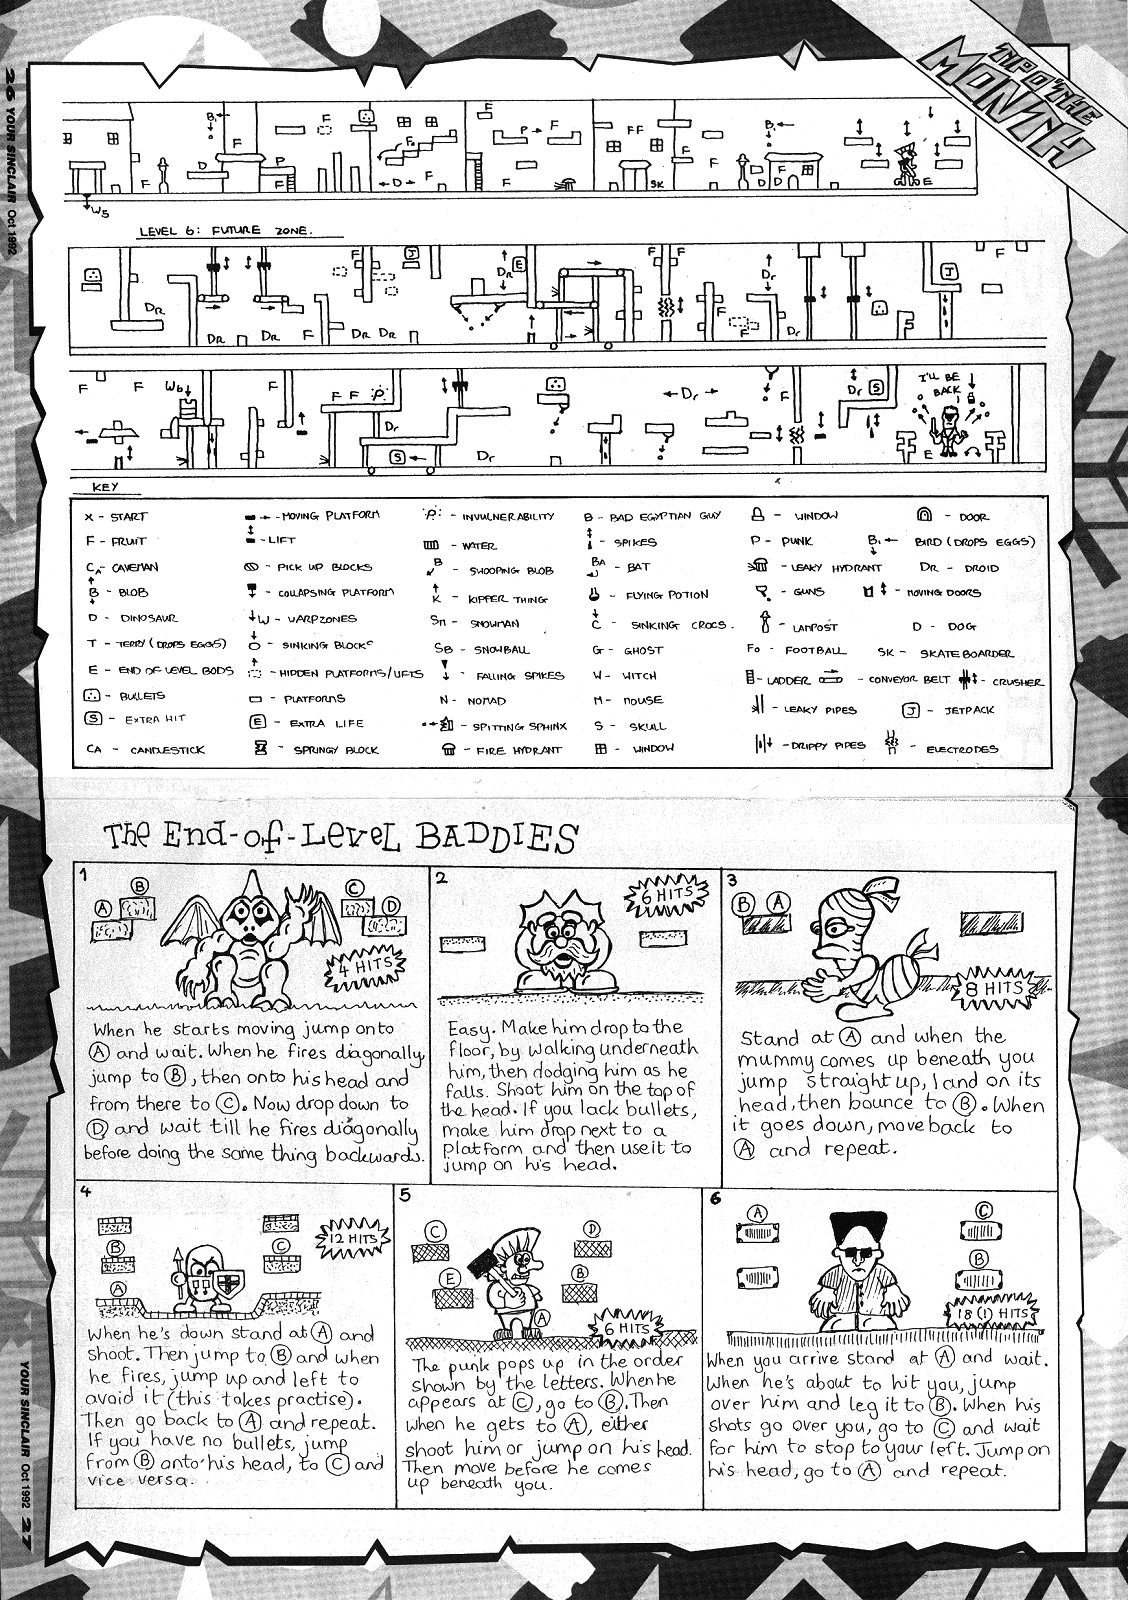 TIP O' THE
MONTH
26 YOUR SINCLAIR Oct 1992
B
F
F
F
P
F
D
F
P
F
D
F
F
F
F
SK
F
F
B
D
D
E
W5
LEVEL 6: FUTURE ZONE.
DR
DR
DR
F
F
DR
DR
J
DR
E
F
F
F
F
Dr
Dr
J
F
F
F
W6
F
F
F
P
Dr
S
Dr
Dr
F
Dr
S
I'LL BE
BACK!
E
KEY
X - START
F - FRUIT
CA - CAVEMAN
B - BLOB
D - DINOSAUR
T - TERRY (DROPS EGGS)
E - END OF LEVEL BODS
- BULLETS
S - EXTRA HIT
CA - CANDLESTICK
- MOVING PLATFORM
- LIFT
- PICK UP BLOCKS
- COLLAPSING PLATFORM
W - WARPZONES
- SINKING BLOCKS
- HIDDEN PLATFORMS/LIFTS
- PLATFORMS
E - EXTRA LIFE
- SPRINGY BLOCK
P - INVULNERABILITY
- WATER
B - SWOOPING BLOB
K - KIPPER THING
Sn - SNOWMAN
SB - SNOWBALL
- FALLING SPIKES
N - NOMAD
- SPITTING SPHINX
- FIRE HYDRANT
B - BAD EGYPTIAN GUY
- SPIKES
BA - BAT
- FLYING POTION
C - SINKING CROCS.
G - GHOST
W - WITCH
M - MOUSE
S - SKULL
- WINDOW
- WINDOW
P - PUNK
- LEAKY HYDRANT
- GUNS
- LAMPOST
Fo - FOOTBALL
- LADDER
- LEAKY PIPES
- DRIPPY PIPES
- DOOR
B - BIRD (DROPS EGGS)
DR - DROID
- MOVING DOORS
D - DOG
SK - SKATEBOARDER
- CONVEYOR BELT
- CRUSHER
J - JETPACK
- ELECTRODES
The End-of-Level BADDIES
1
A
B
C
D
4 HITS
When he starts moving jump onto
A and wait. When he fires diagonally
jump to B, then onto his head and
from there to C. Now drop down to
D and wait till he fires diagonally
before doing the same thing backwards.
2
6 HITS
Easy. Make him drop to the
floor, by walking underneath
him, then dodging him as he
falls. Shoot him on the top of
the head. If you lack bullets,
make him drop next to a
platform and then use it to
jump on his head.
3
B
A
8 HITS
Stand at A and when the
mummy comes up beneath you
jump straight up, land on its
head, then bounce to B. When
it goes down, move back to
A and repeat.
4
B
A
C
12 HITS
When he's down stand at A and
shoot. Then jump to B and when
he fires, jump up and left to
avoid it (this takes practise).
Then go back to A and repeat.
If you have no bullets, jump
from B onto his head, to C and
vice versa.
5
C
E
D
B
A
6 HITS
The punk pops up in the order
shown by the letters. When he
appears at C, go to B. Then
when he gets to A, either
shoot him or jump on his head.
Then move before he comes
up beneath you.
6
A
C
B
18 (!) HITS
When you arrive stand at A and wait.
When he's about to hit you, jump
over him and leg it to B. When his
shots go over you, go to C and wait
for him to stop to your left. Jump on
his head, go to A and repeat.
YOUR SINCLAIR Oct 1992 27